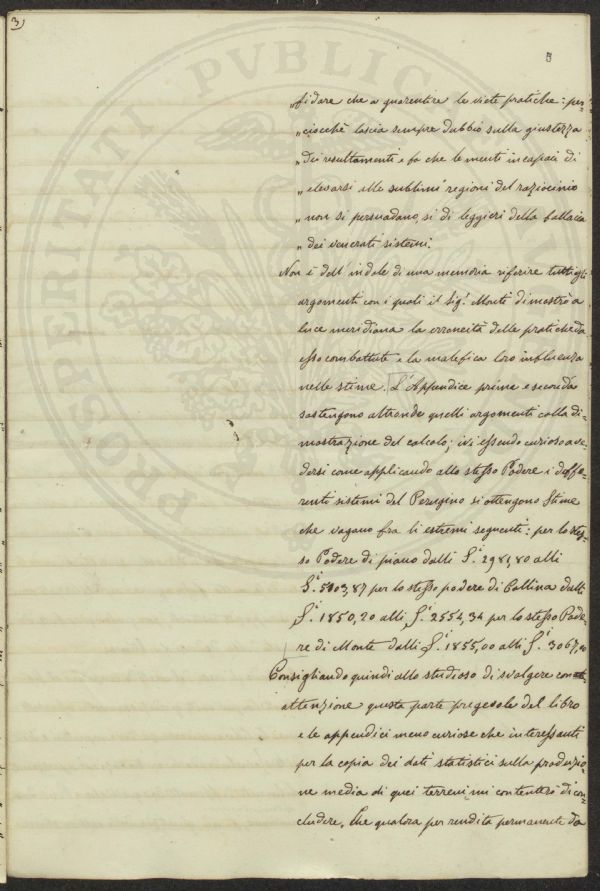 3)
3
„ fidare che a guarentire le viete pratiche: per-
„ ciocchè lascia sempre dubbio sulla giustezza
„ dei resultamenti e fa che le menti incapaci di
„ elevarsi alle sublimi regioni del raziocinio
„ non si persuadano, si di leggieri della fallacia
„ dei venerati sistemi.
Non è dell'indole di una memoria riferire tutti gli
argomenti con i quali il Sig.r Monti dimostrò a
luce meridiana la erroneità delle pratiche da
esso combattute e la malefica loro influenza
nelle stime. L'Appendice prima e seconda
sostengono altronde quelli argomenti colla di-
mostrazione del calcolo; ivi essendo curioso a ve-
dersi come applicando allo stesso Podere i diffe-
renti sistemi del Perugino si ottengono Stime
che vagano fra li estremi seguenti: per lo stes-
so Podere di piano dalli S.i 2981,80 alli
S.i 5003,87 per lo stesso podere di Collina dalli
S.i 1850,20 alli S.i 2554,34 per lo stesso Pode-
re di Monte dalli S.i 1855,00 alli S.i 3067,00
Consigliando quindi allo studioso di svolgere con
attenzione questa parte pregevole del libro
e le appendici meno curiose che interessanti
per la copia dei dati statistici sulla produzio-
ne media di quei terreni mi contenterò di con-
cludere, Che qualora per rendita permanente da
PROSPERITATI PVBLICAE